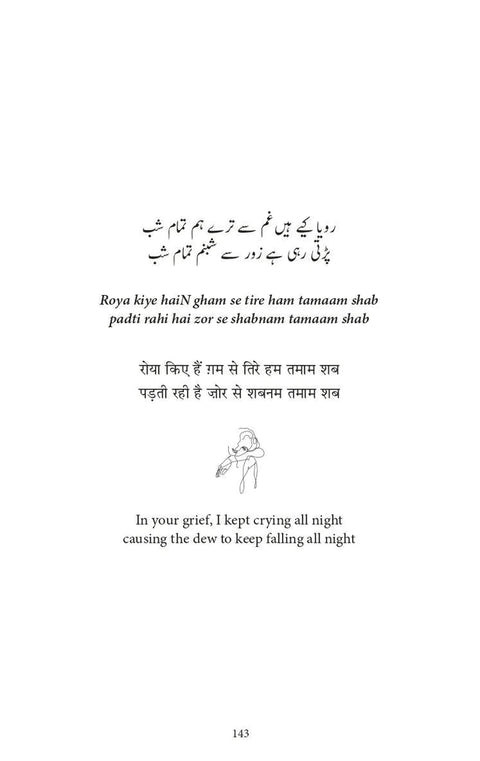 رویا کیے ہیں غم سے ترے ہم تمام شب
پڑتی رہی ہے زور سے شبنم تمام شب
Roya kiye haiN gham se tire ham tamaam shab
padti rahi hai zor se shabnam tamaam shab
रोया किए हैं ग़म से तिरे हम तमाम शब
पड़ती रही है ज़ोर से शबनम तमाम शब
In your grief, I kept crying all night
causing the dew to keep falling all night
143